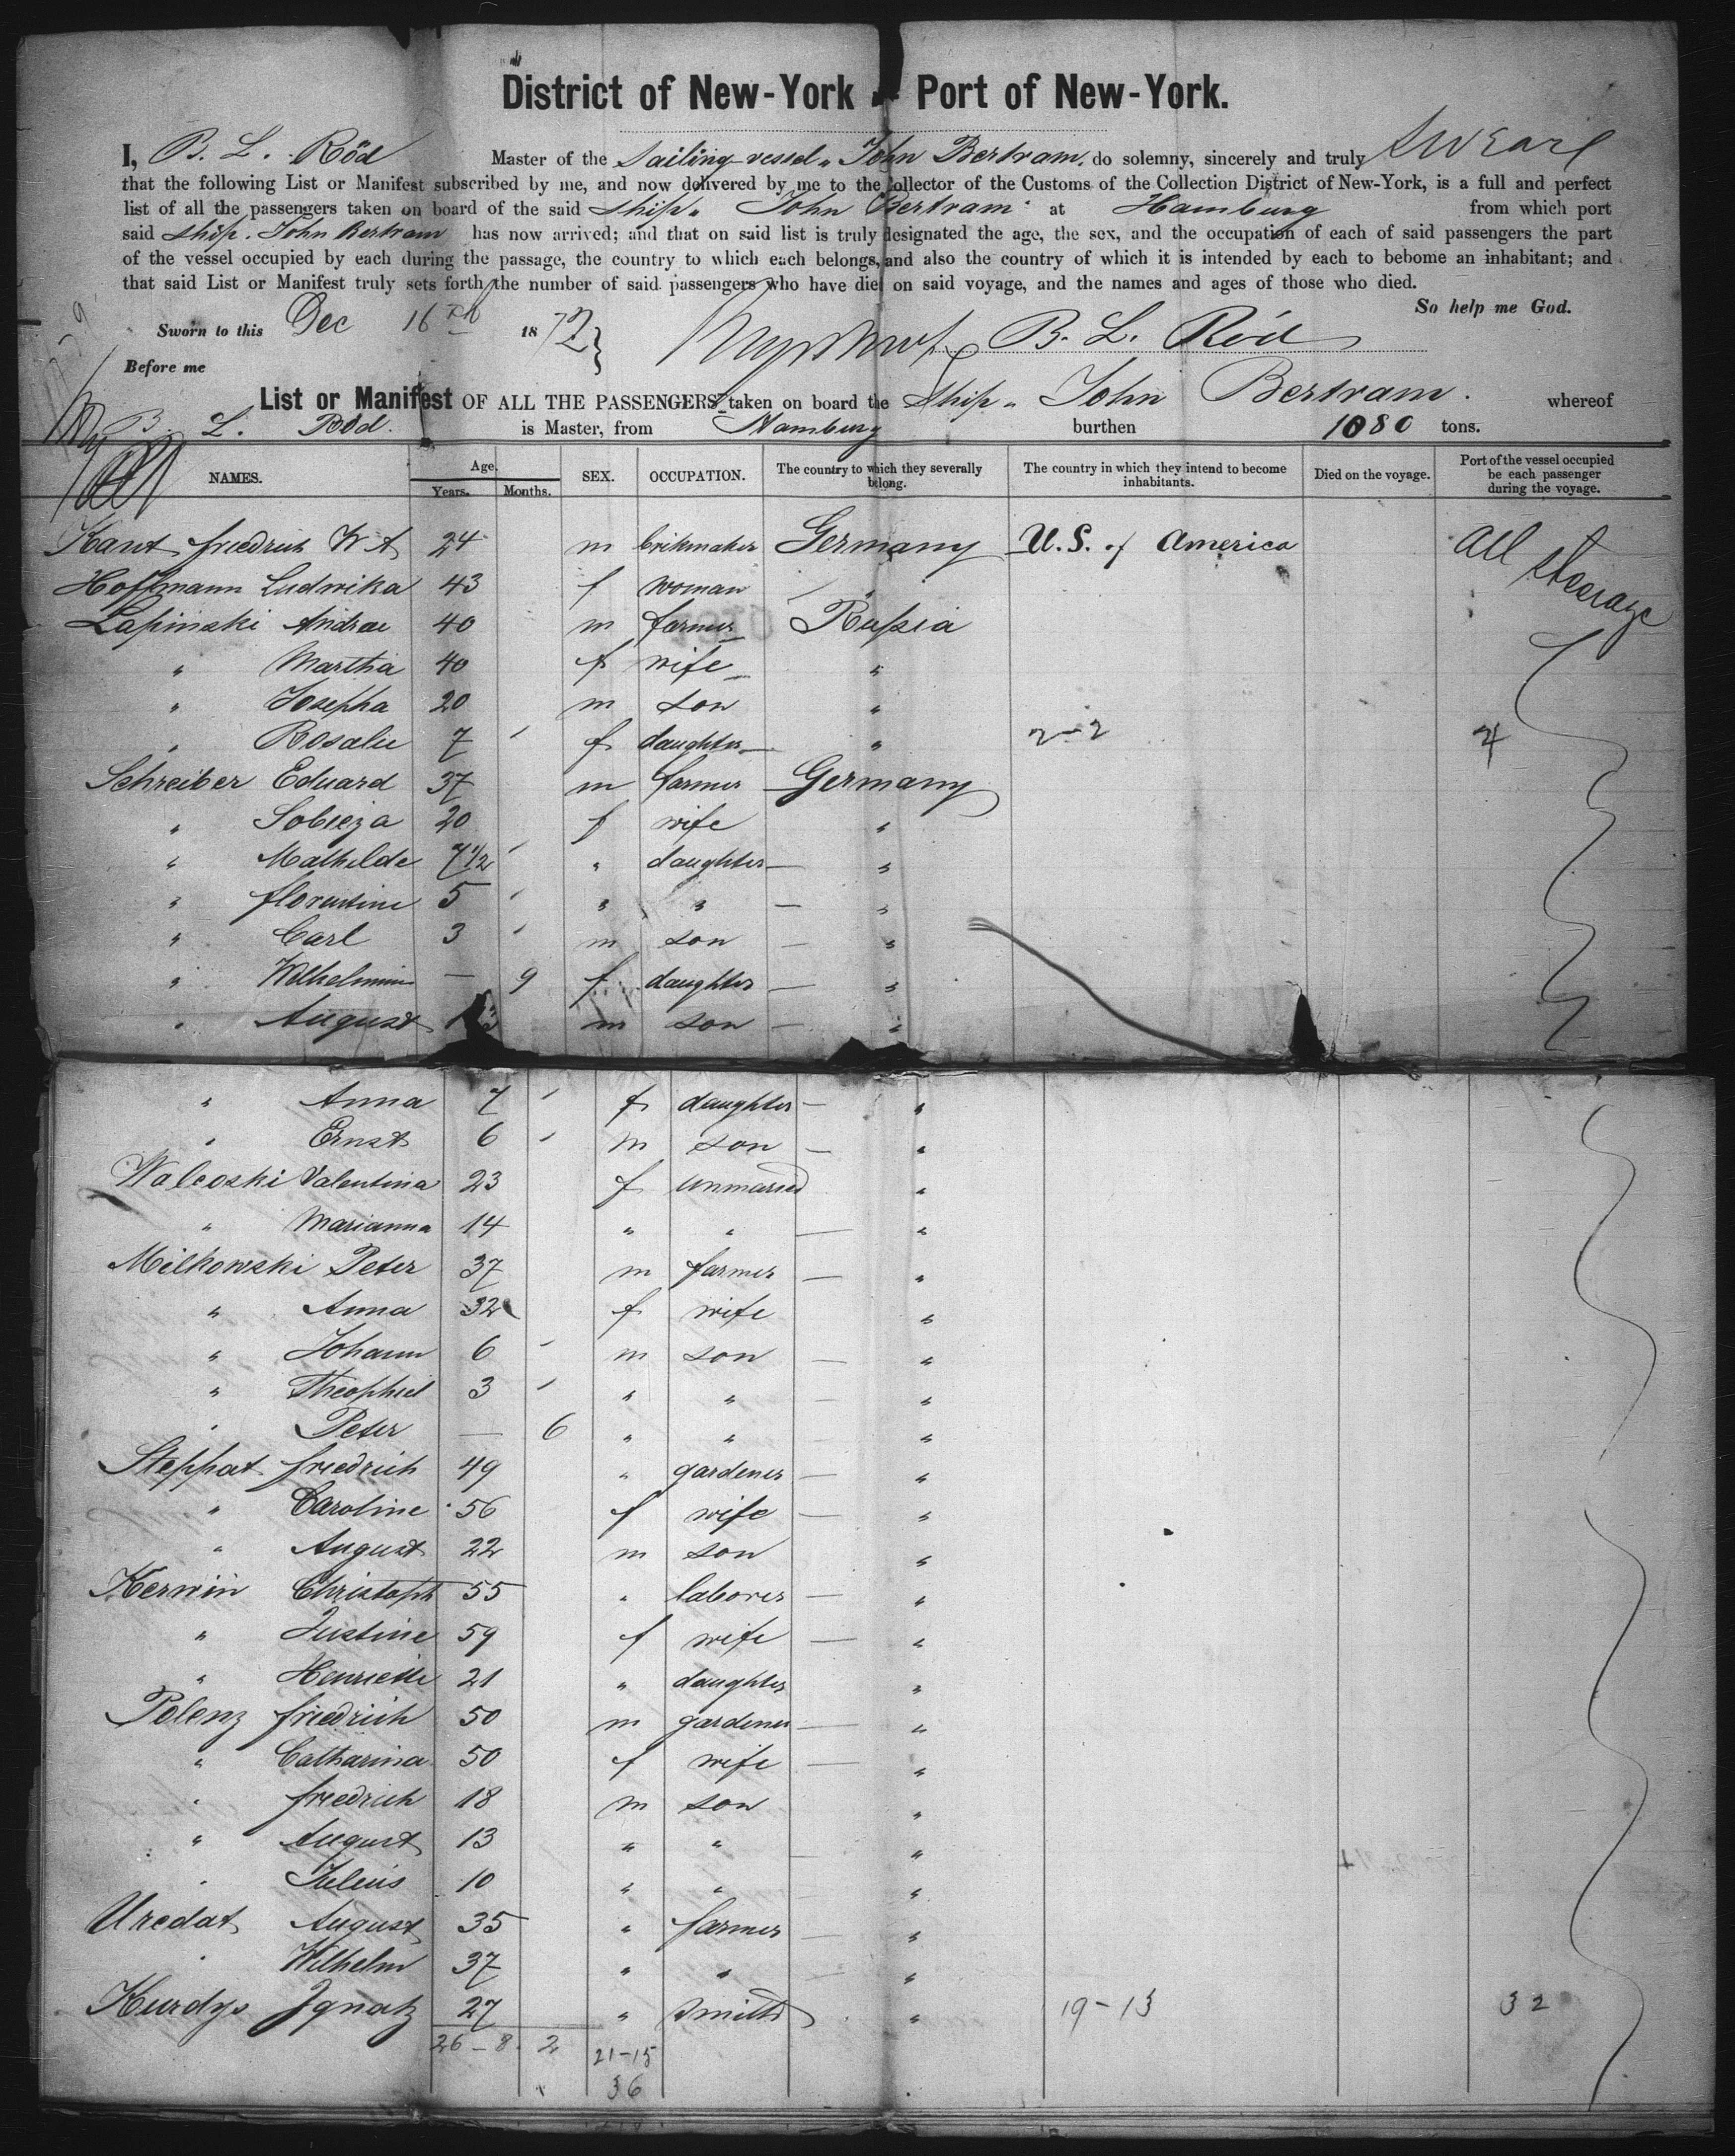 District of New-York Port of New-York.
I, B. L. Röd Master of the Sailing-vessel „ John Bertram. do solemny, sincerely and truly swear
that the following List or Manifest subscribed by me, and now delivered by me to the Collector of the Customs of the Collection District of New-York, is a full and perfect
list of all the passengers taken on board of the said ship „ John Bertram" at Hamburg from which port
said ship. John Bertram has now arrived; and that on said list is truly designated the age, the sex, and the occupation of each of said passengers the part
of the vessel occupied by each during the passage, the country to which each belongs, and also the country of which it is intended by each to bebome an inhabitant; and
that said List or Manifest truly sets forth the number of said passengers who have died on said voyage, and the names and ages of those who died.
So help me God.
Sworn to this Dec 16th 1872 } B. L. Röd
Before me
List or Manifest OF ALL THE PASSENGERS taken on board the ship „ John Bertram. whereof
B. L. Röd. is Master, from Hamburg burthen 1080 tons.
NAMES. Age. Years. Months. SEX. OCCUPATION. The country to which they severally belong. The country in which they intend to become inhabitants. Died on the voyage. Port of the vessel occupied be each passenger during the voyage.
Kant friedrich W A 24 m brikmaker Germany U.S. of America All steerage
Hoffmann Ludwika 43 f woman "
Lapinski Andrae 40 m farmer Russia
" Martha 40 f wife "
" Josepha 20 m son "
" Rosalie 7 f daughter " 2-2 4
Schreiber Eduard 37 m farmer Germany
" Sobieza 20 f wife "
" Mathilde 7 1/2 " daughter "
" florentine 5 " " "
" Carl 3 m son "
" Wilhelmine — 9 f daughter "
" August m son "
" Anna 7 f daughter "
" Ernst 6 m son "
Walcoski Valentina 23 f unmaried "
" Marianna 14 " " "
Milkowski Peter 37 m farmer "
" Anna 32 f wife "
" Johann 6 m son "
" Theophiel 3 " " "
" Peter — 6 " " "
Steppat friedrich 49 " gardener "
" Caroline 56 f wife "
" August 22 m son "
Kerwin Christoph 55 " laborer "
" Justine 59 f wife "
" Henriette 21 " daughter "
Polenz friedrich 50 m gardener "
" Catharina 50 f wife "
" friedrich 18 m son "
" August 13 " " "
" Julius 10 " " "
Uredat August 35 " farmer "
" Wilhelm 37 " " "
Kurdys Ignatz 27 " smith " 19-13 32
26-8 2 21-15
36